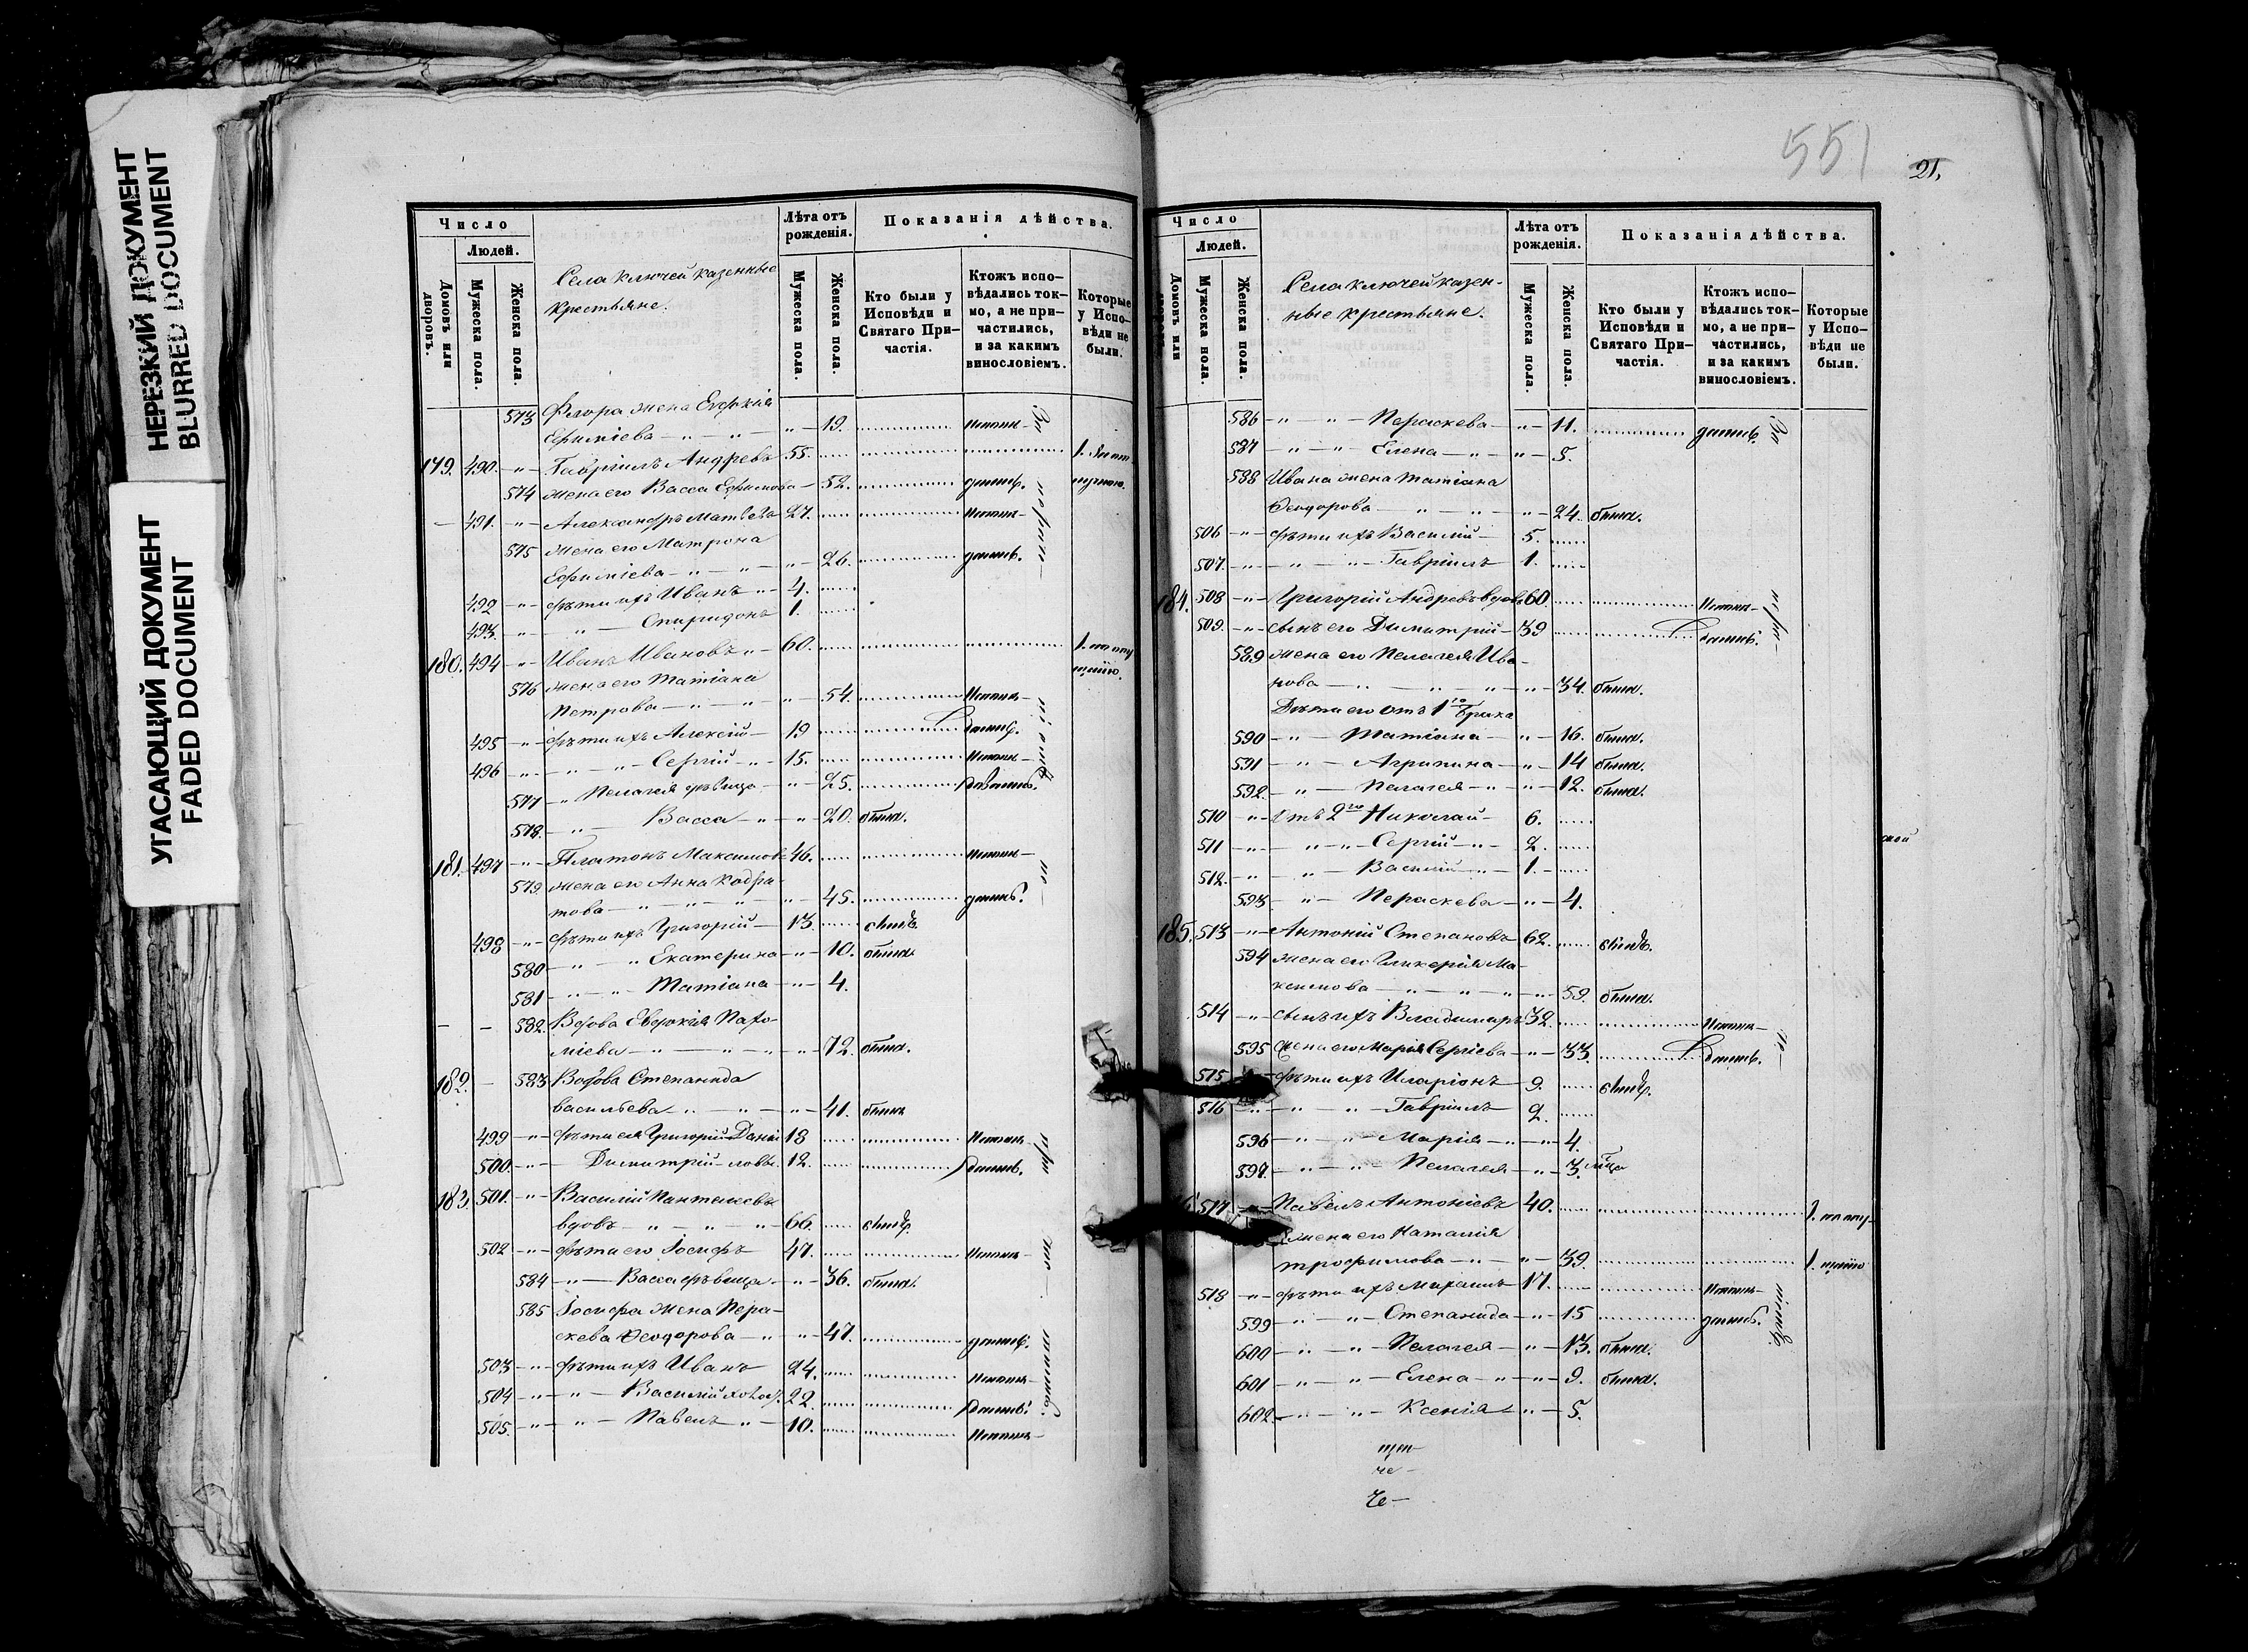 НЕРЕЗКИЙ ДОКУМЕНТ
BLURRED DOCUMENT
УГАСАЮЩИЙ ДОКУМЕНТ
FADED DOCUMENT
Число
Людей.
Домовъ или дворовъ.
Мужеска пола.
Женска пола.
Села Ключей казенные
крестьяне.
Лѣта отъ
рожденія.
Мужеска пола.
Женска пола.
Показанія дѣйства.
Кто были у
Исповѣди и
Святаго При-
частія.
Ктожъ испо-
вѣдались ток-
мо, а не при-
частились,
и за какимъ
винословіемъ.
Которые
у Испо-
вѣди не
были.
573 Флора жена Евдокія
Ефиміева — " — " — " — 19.
179. 490. — " — Гавріилъ Андреевъ 55.
574 жена его Васса Ефимова — 52.
— 491. — " — Александръ Матвѣевъ 27.
575 жена его Матрона
Ефиміева — " — " — " — 26.
492 — " — дѣти ихъ Иванъ — " — 4.
493. — " — " — Спиридонъ 1.
180. 494 — " — Иванъ Ивановъ " — 60.
576 жена его Татіана
Петрова — " — " — " — 54.
495 — " — дѣти ихъ Алексій — 19
496 — " — " — " — Сергій — " — 15.
577 — " Пелагея дѣвица — " — 25.
578. — " — Васса — " — " — 20. была.
181. 497 — " — Платонъ Максимовъ 46.
579. жена его Анна Кодра-
това — " — " — " — " — 45.
498 — " — дѣти ихъ Григорій — 13.
580 — " — " Екатерина — " — 10. была
581 — " — " — Татіана — " — 4.
— — 582. Вдова Евдокія Пахо-
міева — " — " — " — " — 72. была.
182. — 583 Вдова Степанида
васильева — " — " — " — 41. была
499 — " — дѣти ея Григорій Данiи 18
500. — " — Димитрій — ловы. 12.
183. 501. — " — Василій Пантелеевъ
вдовъ — " — " — " — 66.
502 — " — дѣти его Іосифъ 47.
584 — " — Васса дѣвица — " — 36. была.
585 Іосифа жена Пера-
скева Ѳеодорова — " — " — 47.
503 — " — дѣти ихъ Иванъ 24.
504 — " — " — Василій холос. 22.
505. — " — " — Павелъ " — 10.
551
21.
Число
Людей.
Домовъ или
Мужеска пола.
Женска пола.
Села Ключей казен-
ные крестьяне.
Лѣта отъ
рожденія.
Мужеска пола.
Женска пола.
Показанія дѣйства.
Кто были у
Исповѣди и
Святаго При-
частія.
Ктожъ испо-
вѣдались ток-
мо, а не при-
частились,
и за какимъ
винословіемъ.
Которые
у Испо-
вѣди не
были.
586 — " — " — Пераскева — " — 11.
587 — " — " — Елена — " — " — 5.
588 Ивана жена Татіана
Ѳеодорова — " — " — " — 24. была.
506 — " — дѣти ихъ Василій — 5.
507. — " — " — " — Гавріилъ 1.
184. 508 — " — Григорій Андреевъ вдовъ 60
509. — " — сынъ его Димитрій — 39
589 жена его Пелагея Ива-
нова — " — " — " — " — 34. была.
Дѣти его отъ 1го брака
590 — " — Татіана — " — 16. была.
591 — " — Агрипина — " — 14 была.
592. — " — Пелагея — " — " — 12. была.
510 — " — Отъ 2го Николай — 6.
511 — " — " — " — Сергій — " — 2.
512. — " — " — Василій — " — 1.
593 — " — Пераскева — " — 4.
185. 513 — " — Антоній Степановъ 62.
594 жена его Гликерія Ма-
ксимова — " — " — " — " — 59. была.
514 — " — сынъ ихъ Владимиръ 32.
595 жена его Марія Сергіева — " — 33.
515 дѣти ихъ Иларіонъ — 9.
516 — " — " — " — Гавріилъ 2.
596 — " — " — Марія — " — " — 4.
597. — " — " — Пелагея — " — 3. мца
517 — " — Павелъ Антоніевъ 40.
жена его Наталія
трофимова — " — " — 39.
518 — " — дѣти ихъ Михаилъ 17.
599 — " — " — Степанида — " — 15
600 — " — " — Пелагея — " — 13. была.
601 — " — " — Елена — " — " — 9. была.
602. — " — " — Ксенія — " — 5.